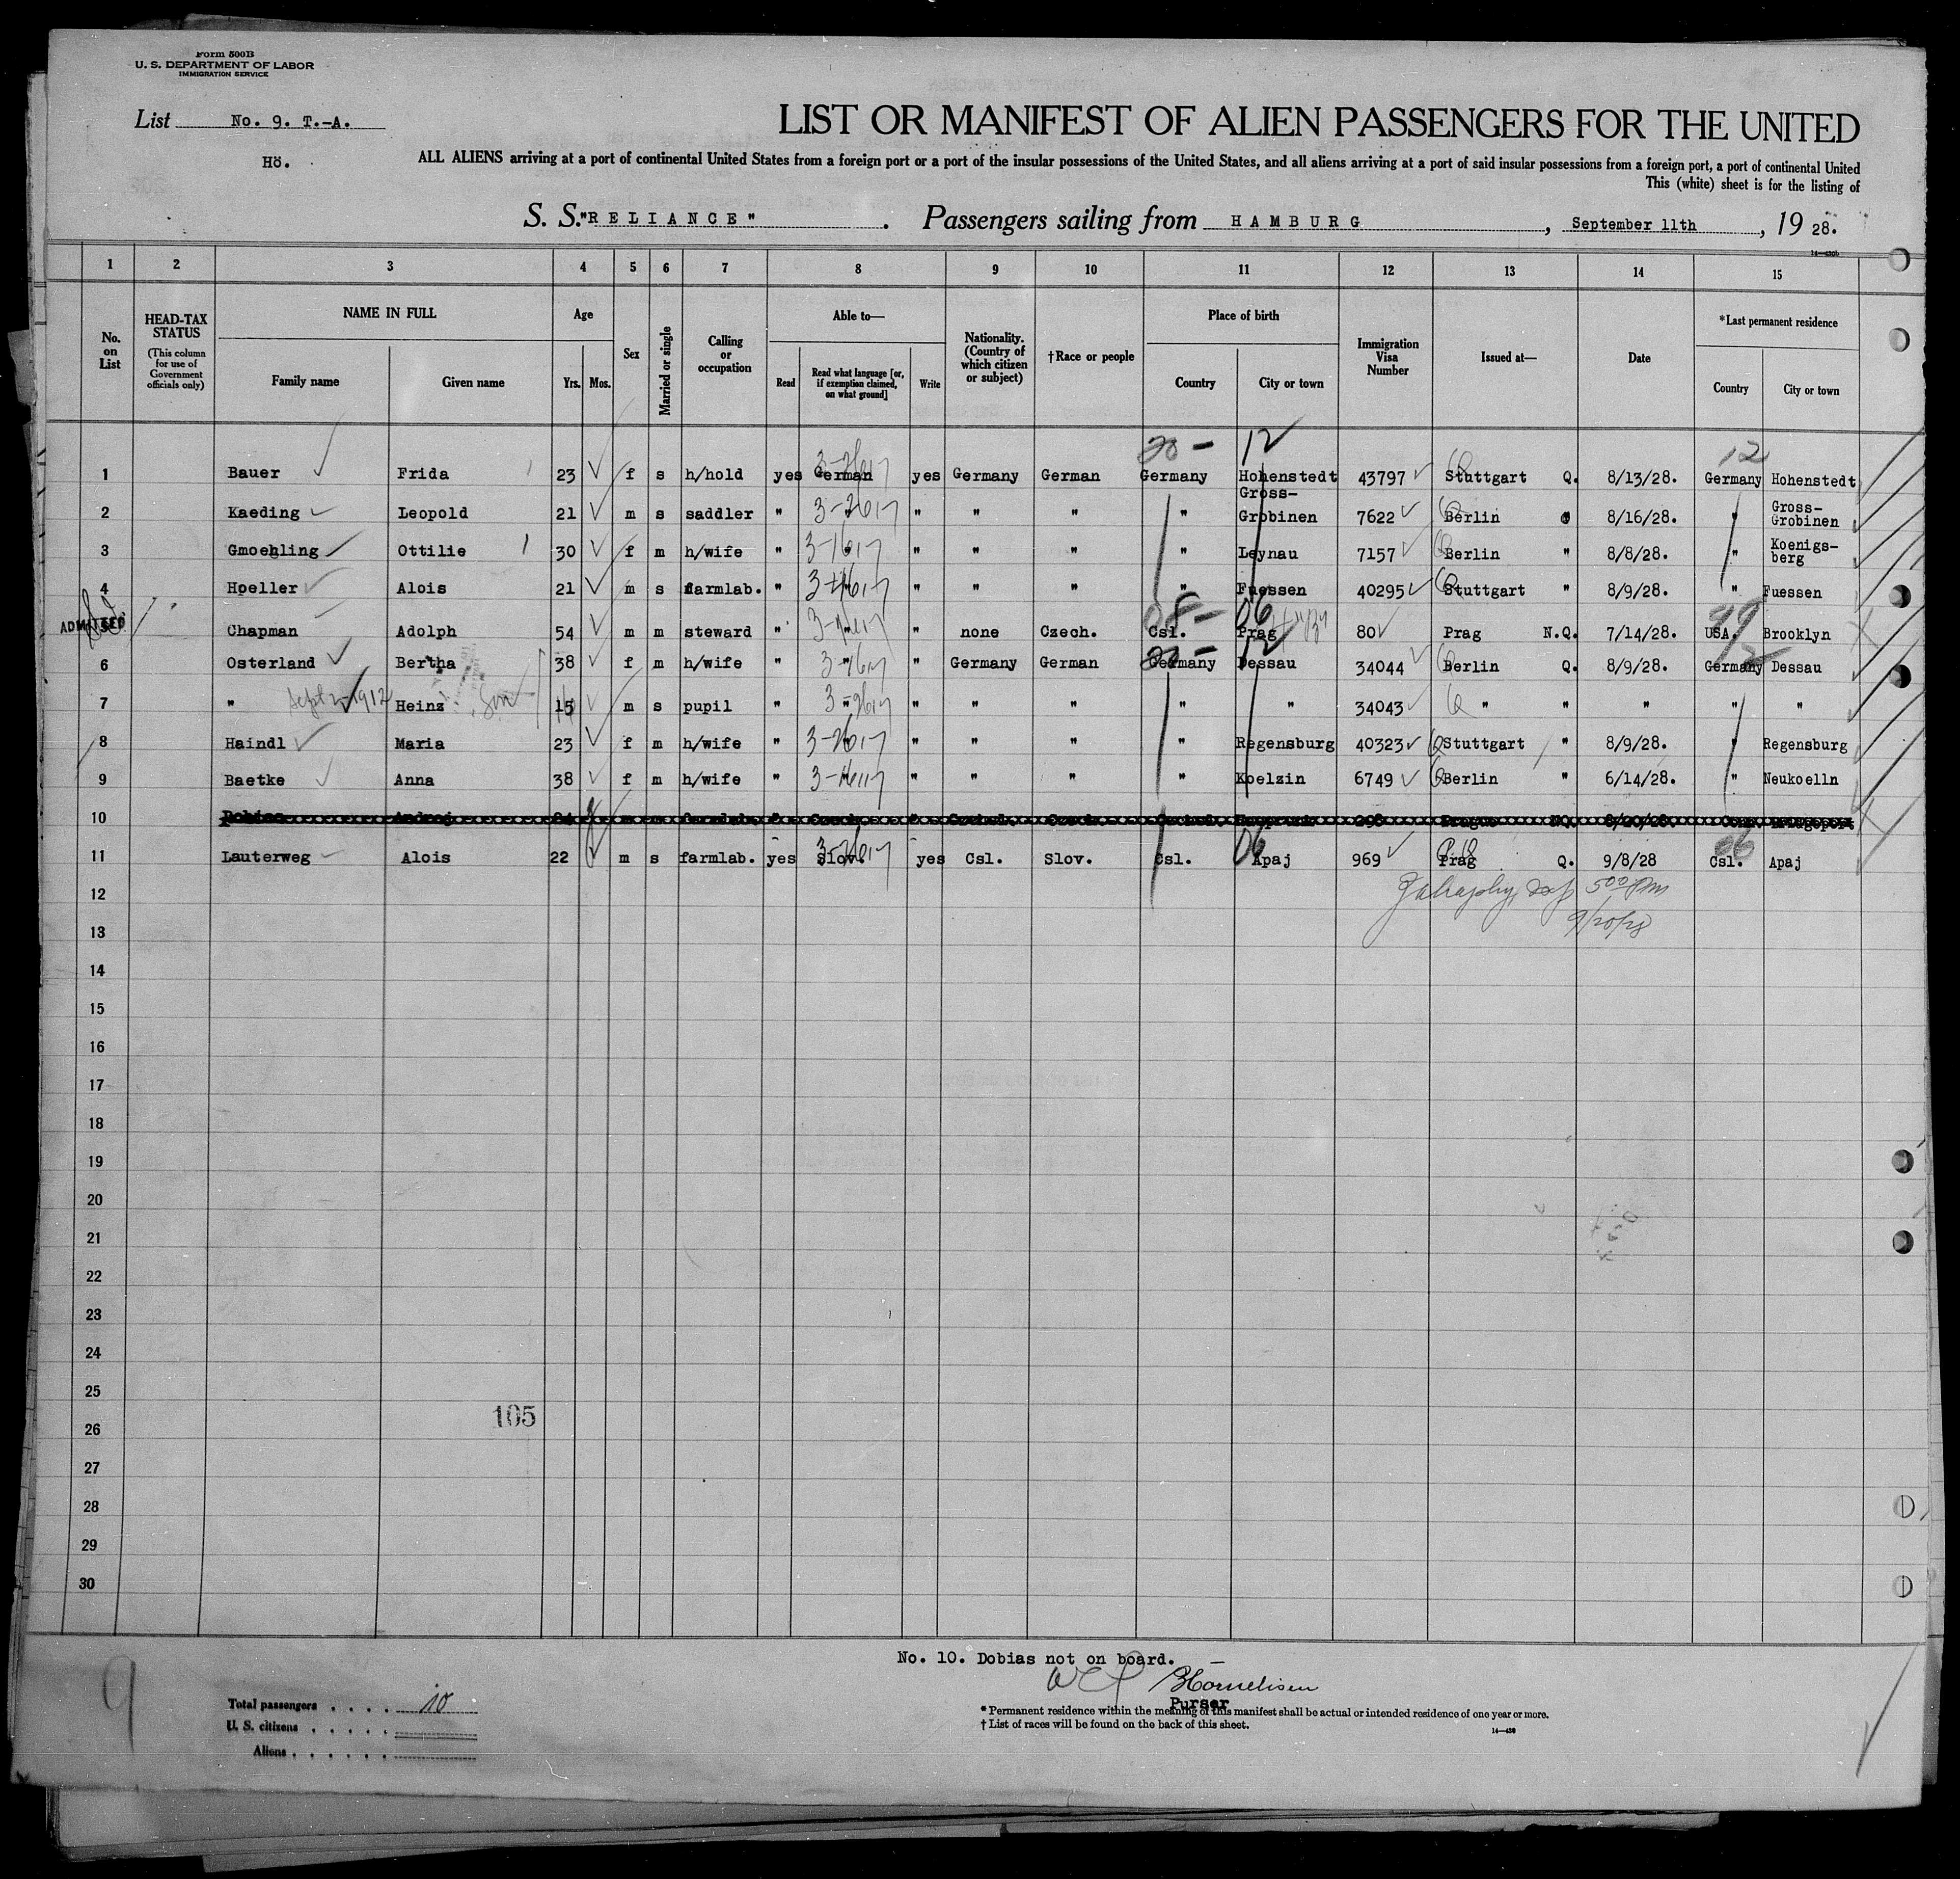 Form 500B
U. S. DEPARTMENT OF LABOR
IMMIGRATION SERVICE
List No. 9. T.-A.
Hö.
LIST OR MANIFEST OF ALIEN PASSENGERS FOR THE UNITED
ALL ALIENS arriving at a port of continental United States from a foreign port or a port of the insular possessions of the United States, and all aliens arriving at a port of said insular possessions from a foreign port, a port of continental United
This (white) sheet is for the listing of
S. S. "RELIANCE" . Passengers sailing from HAMBURG , September 11th , 19 28.
1 2 3 4 5 6 7 8 9 10 11 12 13 14 15
No. on List
HEAD-TAX STATUS (This column for use of Government officials only)
NAME IN FULL
Family name Given name
Age
Yrs. Mos.
Sex
Married or single
Calling or occupation
Able to—
Read Read what language [or, if exemption claimed, on what ground] Write
Nationality. (Country of which citizen or subject)
†Race or people
Place of birth
Country City or town
Immigration Visa Number
Issued at—
Date
*Last permanent residence
Country City or town
20 - 12 12
1 Bauer Frida 23 f s h/hold yes German yes Germany German Germany Hohenstedt 43797 Stuttgart Q. 8/13/28. Germany Hohenstedt
2 Kaeding Leopold 21 m s saddler " " " " " Gross-Grobinen 7622 Berlin 8/16/28. " Gross-Grobinen
3 Gmoehling Ottilie 30 f m h/wife " " " " " " Leynau 7157 Berlin " 8/8/28. " Koenigs-berg
4 Hoeller Alois 21 m s farmlab. " " " " " " Fuessen 40295 Stuttgart " 8/9/28. " Fuessen
ADMITTED Chapman Adolph 54 m m steward " " " none Czech. Csl. Prag 80 Prag N.Q. 7/14/28. USA. Brooklyn
6 Osterland Bertha 38 f m h/wife " " " Germany German Germany Dessau 34044 Berlin Q. 8/9/28. Germany Dessau
7 " Heinz Son 15 m s pupil " " " " " " " 34043 " " " " "
8 Haindl Maria 23 f m h/wife " " " " " " Regensburg 40323 Stuttgart " 8/9/28. " Regensburg
9 Baetke Anna 38 f m h/wife " " " " " " Koelzin 6749 Berlin " 6/14/28. " Neukoelln
10 Dobias
11 Lauterweg Alois 22 m s farmlab. yes Slov. yes Csl. Slov. Csl. Apaj 969 Prag Q. 9/8/28 Csl. Apaj
12
5 00 Pm
13
9/20/28
14
15
16
17
18
19
20
21
22
23
24
25
105
26
27
28
29
30
No. 10. Dobias not on board.
Purser
9
Total passengers . . . . 10
U. S. citizens . . . . .
Aliens . . . . . .
* Permanent residence within the meaning of this manifest shall be actual or intended residence of one year or more.
† List of races will be found on the back of this sheet.
14—430